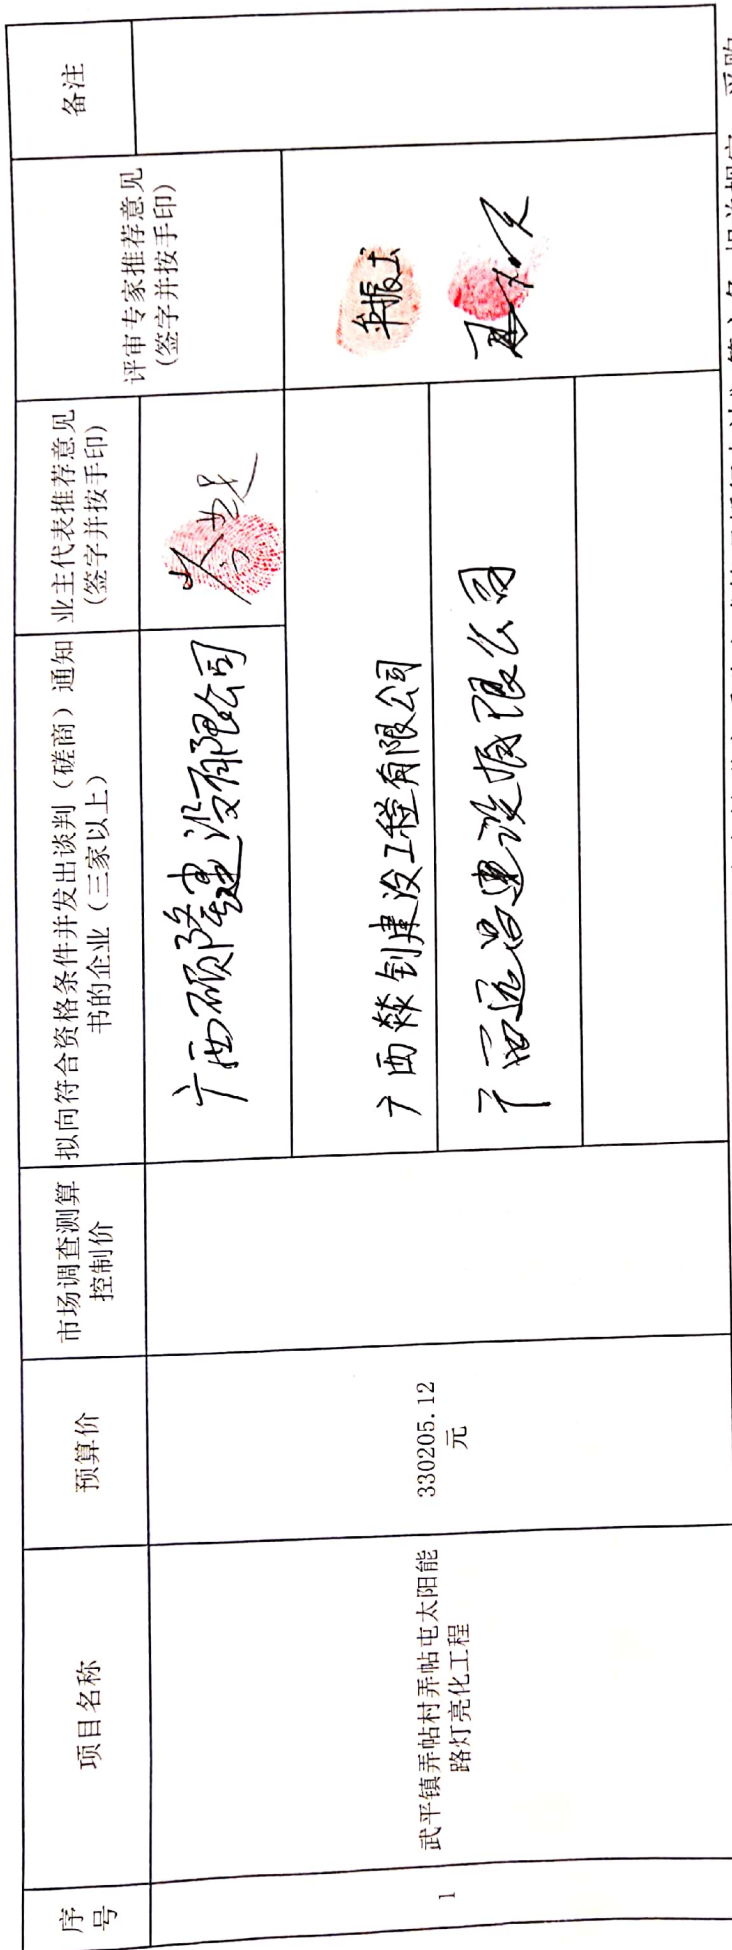 序
号
项目名称
预算价
市场调查测算
控制价
拟向符合资格条件并发出谈判（磋商）通知
书的企业（三家以上）
业主代表推荐意见
（签字并按手印）
评审专家推荐意见
（签字并按手印）
备注
1
武平镇弄帖村弄帖屯太阳能
路灯亮化工程
330205.12
元
广西硕隆建设有限公司
广西燚钊建设工程有限公司
广西远昌建设有限公司